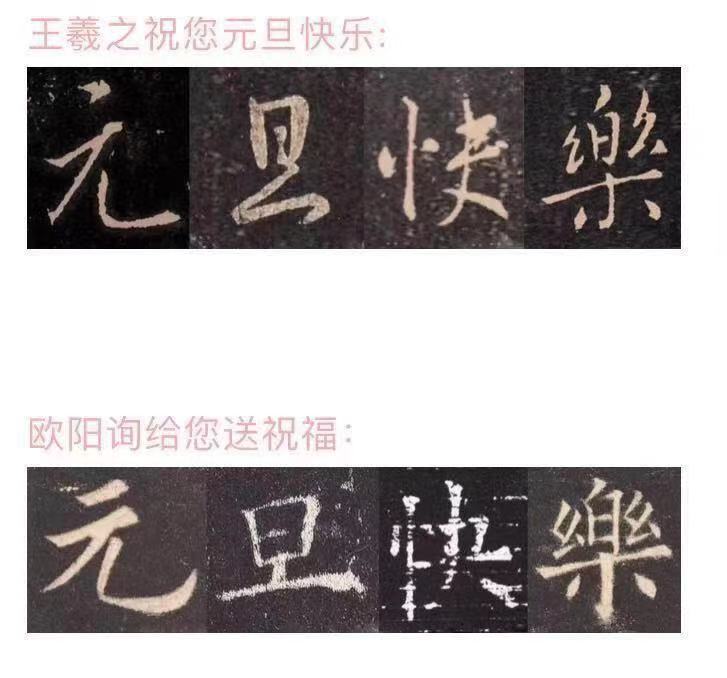 王羲之祝您元旦快乐:
元旦快樂
欧阳询给您送祝福:
元旦快樂